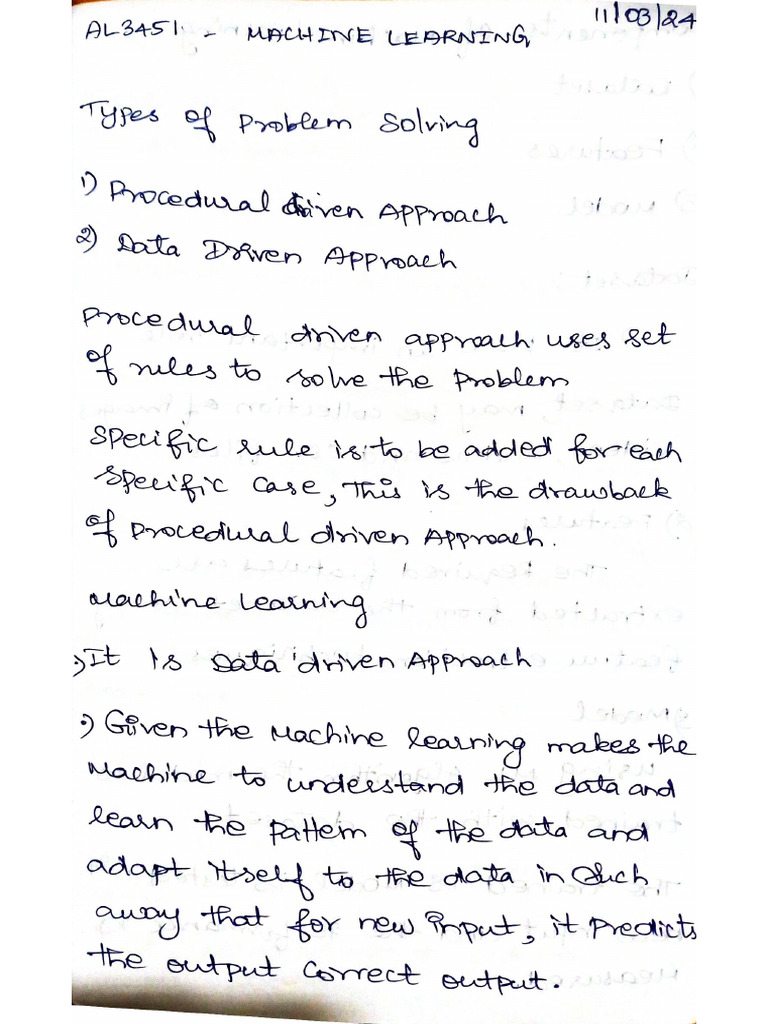 11/03/24
AL3451 - MACHINE LEARNING
Types of Problem Solving
1) Procedural driven Approach
2) Data Driven Approach
Procedural driven approach uses set
of rules to solve the Problem
Specific rule is to be added for each
specific case, This is the drawback
of Procedural driven Approach.
Machine Learning
•) It Is Data driven Approach
•) Given the Machine learning makes the
Machine to understand the data and
learn the pattern of the data and
adapt itself to the data in Such
away that for new input, it Predicts
the output correct output.